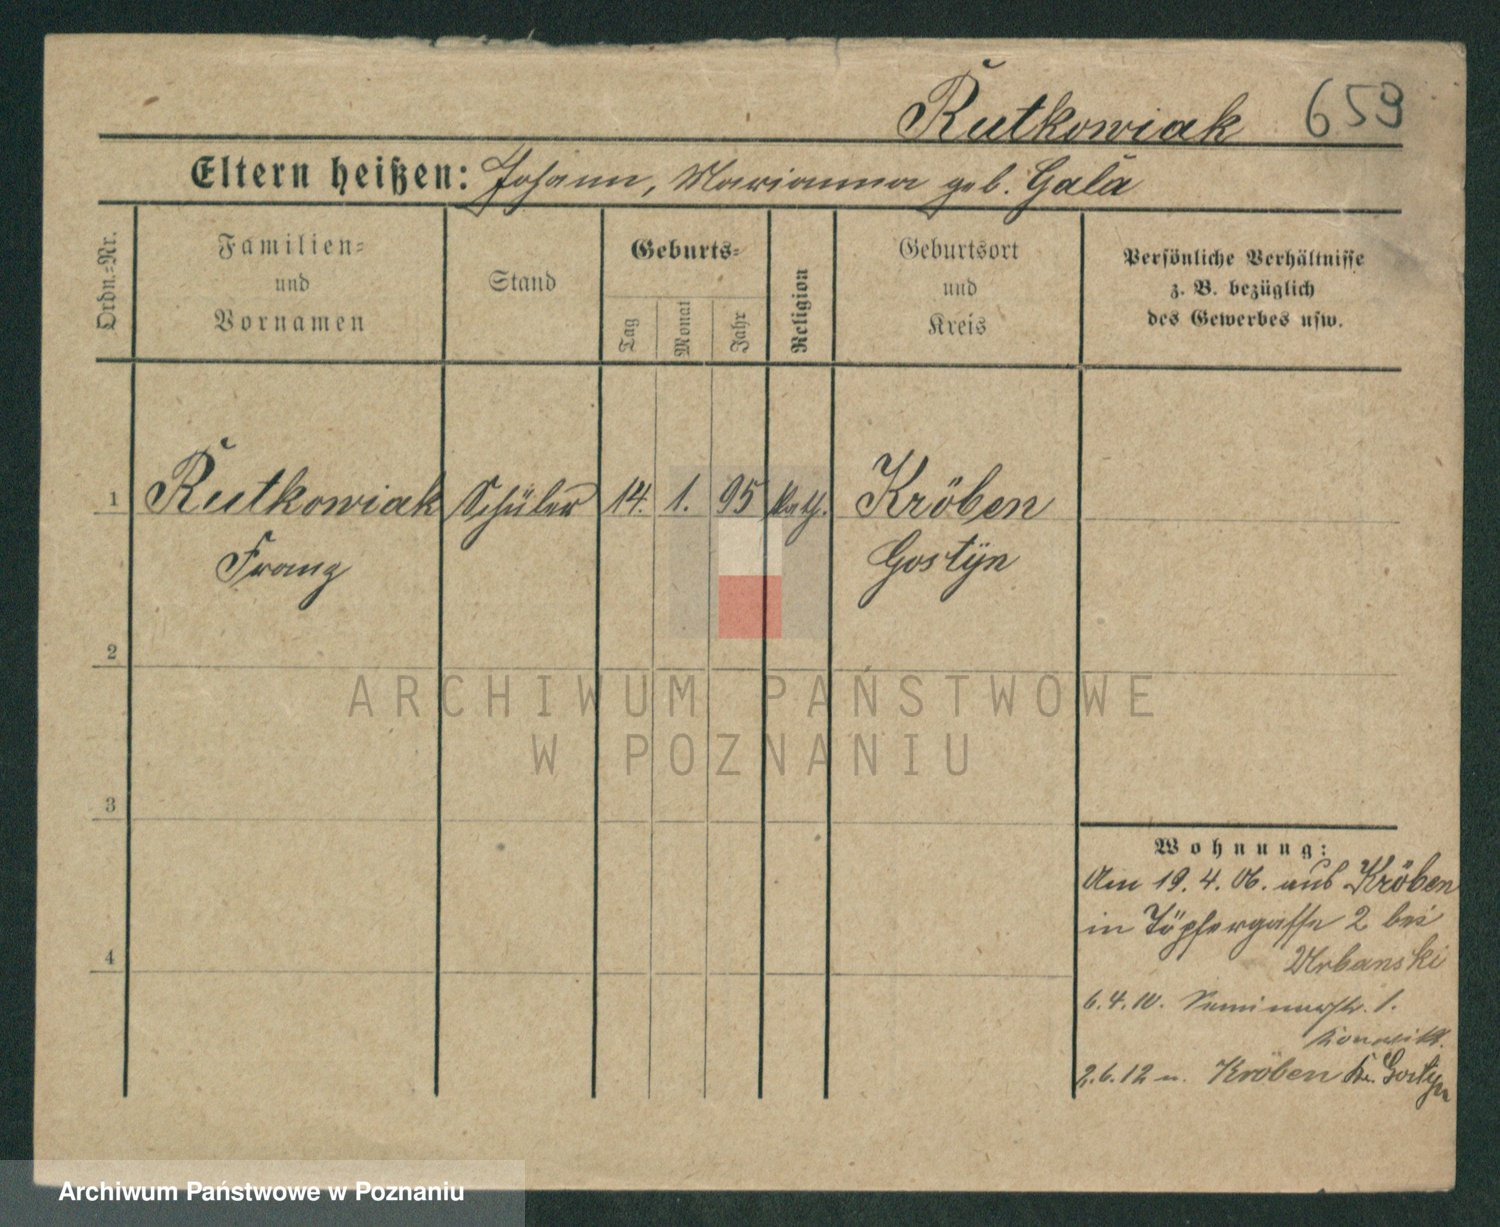 Rutkowiak 659
Eltern heißen: Johann, Marianna geb. Gala
Ordn.-Nr.
Familien-
und
Vornamen
Stand
Geburts-
Tag
Monat
Jahr
Religion
Geburtsort
und
Kreis
Persönliche Verhältnisse
z. B. bezüglich
des Gewerbes usw.
1 Rutkowiak Schüler 14. 1. 95 kath. Kröben
Franz Gostÿn
2
3
4
Wohnung:
Am 19.4.06. aus Kröben
in Töpfergasse 2 bei
Urbanski
6.4.10. Seminarstr. 1.
Konvikt.
2.6.12 n. Kröben Kr. Gostyn
ARCHIWUM PAŃSTWOWE
W POZNANIU
Archiwum Państwowe w Poznaniu